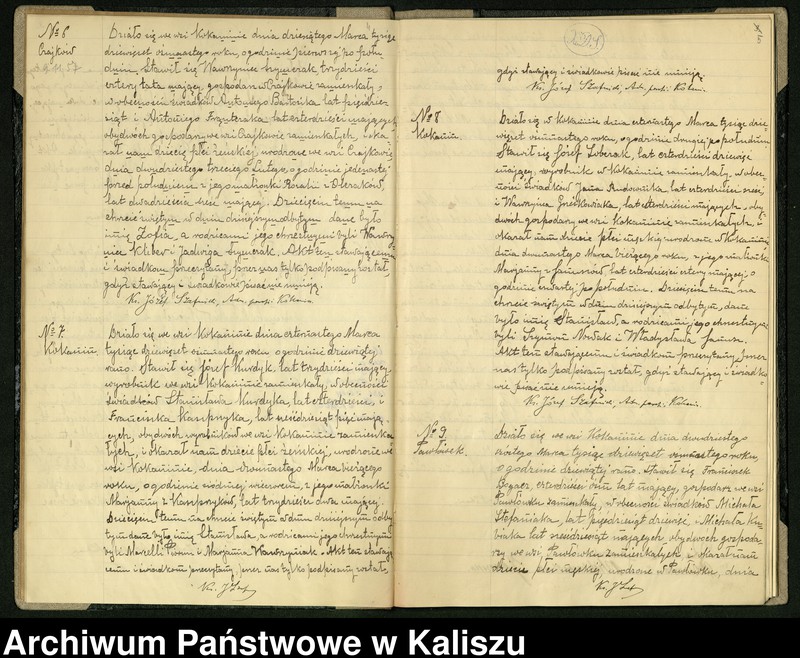 № 6
Czajków
Działo się we wsi Kokaninie dnia dziesiątego Marca tysiąc
dziewięćset osmnastego roku, o godzinie pierwszej po połu
dniu. Stawił się Wawrzyniec Szymczak, trzydzieści
cztery lata mający, gospodarz w Czajkowie zamieszkały,
w obecności świadków Antoniego Bartosika lat pięćdzie
siąt i Antoniego lat czterdzieści mających,
obydwóch gospodarzy we wsi Czajkowie zamieszkałych, i oka
zał nam dziecię płci żeńskiej, urodzone we wsi Czajkowie
dnia dwudziestego trzeciego Lutego, o godzinie jedenastej
przed południem z jego małżonki Rozalii z
lat dwadzieścia sześć mającej. Dziecięciu temu na
chrzcie świętym w dniu dzisiejszym odbytym dane było
imię Zofia, a rodzicami jego chrzestnymi byli Wawrzy
niec i Jadwiga Szymczak. Akt ten stawającemu
i świadkom przeczytany, przez nas tylko podpisany został,
gdyż stawający i świadkowie pisać nie umieją.
Ks. Józef Szafnicki, Adm. par. Kokanin.
№ 7.
Kokanin.
Działo się we wsi Kokaninie dnia czternastego Marca
tysiąc dziewięćset osmnastego roku o godzinie dziewiątej
rano. Stawił się Józef Kurdyk, lat trzydzieści mający,
wyrobnik we wsi Kokaninie zamieszkały, w obecności
świadków Stanisława Kurdyka, lat czterdzieści, i
Franciszka Kasprzyka, lat sześćdziesiąt pięć mają
cych, obydwóch wyrobników we wsi Kokaninie zamieszka
łych, i okazał nam dziecię płci żeńskiej, urodzone we
wsi Kokaninie, dnia dwunastego Marca bieżącego
roku, o godzinie siódmej wieczorem, z jego małżonki
Maryanny z Kasprzyków, lat trzydzieści dwa mającej.
Dziecięciu temu na chrzcie świętym w dniu dzisiejszym odby
tym dane było imię Stanisława, a rodzicami jego chrzestnymi
byli i Maryanna Wawrzyniak. Akt ten stawają
cemu i świadkom przeczytany, przez nas tylko podpisany został,
Ks. J. Szaf
5
gdyż stawający i świadkowie pisać nie umieją.
Ks. Józef Szafnicki, Adm. par. Kokanin.
№ 8
Kokanin.
Działo się w Kokaninie dnia czternastego Marca tysiąc dzie
więćset osmnastego roku, o godzinie drugiej po południu.
Stawił się Józef lat czterdzieści dziewięć
mający, wyrobnik w Kokaninie zamieszkały, w obec
ności świadków Jana lat czterdzieści sześć
i Wawrzyna Grześkowiaka, lat czterdzieści mających, oby
dwóch gospodarzy we wsi Kokaninie zamieszkałych, i
okazał nam dziecię płci męskiej urodzone w Kokaninie
dnia dwunastego Marca bieżącego roku, z jego małżonki
Maryanny z Janusów, lat czterdzieści cztery mającej, o
godzinie czwartej po południu. Dziecięciu temu na
chrzcie świętym w dniu dzisiejszym odbytym, dane
było imię Stanisław, a rodzicami jego chrzestnymi
byli Szymon Nowak i Władysława Janus.
Akt ten stawającemu i świadkom przeczytany, przez
nas tylko podpisany został, gdyż stawający i świadko
wie pisać nie umieją.
Ks. Józef Szafnicki, Adm. par. Kokanin.
№ 9.
Pawłówek.
Działo się we wsi Kokaninie dnia dwudziestego
szóstego Marca tysiąc dziewięćset osmnastego roku,
o godzinie dziewiątej rano. Stawił się Franciszek
czterdzieści ośm lat mający, gospodarz we wsi
Pawłówku zamieszkały, w obecności świadków Michała
Stefaniaka, lat pięćdziesiąt dziewięć, i Michała Ku
biaka lat sześćdziesiąt mających, obydwóch gospoda
rzy we wsi Pawłówku zamieszkałych i okazał nam
dziecię płci męskiej, urodzone w Pawłówku, dnia
Ks. J. Szaf
Archiwum Państwowe w Kaliszu